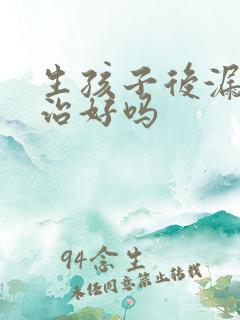 生孩子後漏
治好吗
94念生
未经同意禁止转载